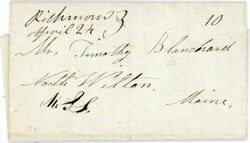 Richmond 10
April 24
Mr. Timothy Blanchard
North Wilton
Maine.